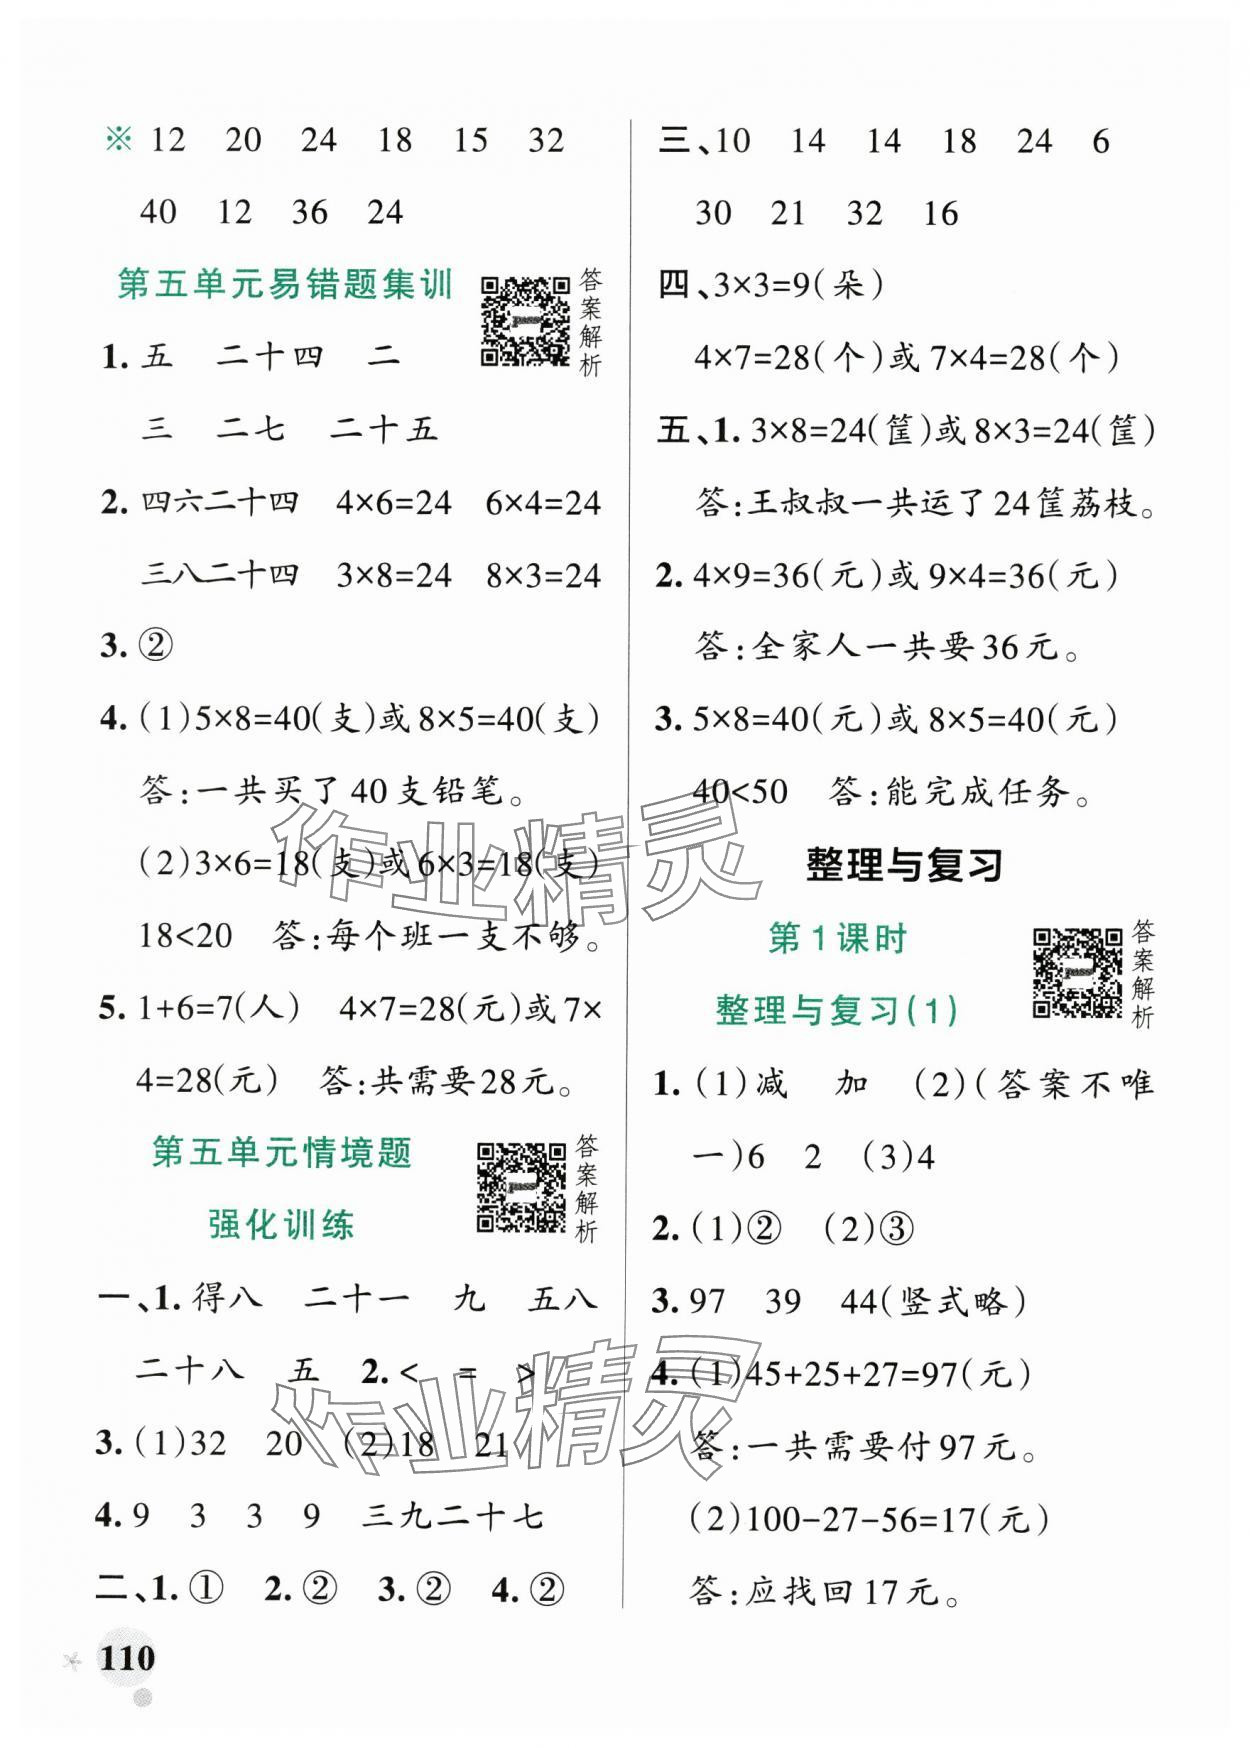 ※ 12 20 24 18 15 32
40 12 36 24
第五单元易错题集训
答案解析
1. 五 二十四 二
三 二七 二十五
2. 四六二十四 4×6=24 6×4=24
三八二十四 3×8=24 8×3=24
3. ②
4. (1)5×8=40(支)或8×5=40(支)
答:一共买了40支铅笔。
(2)3×6=18(支)或6×3=18(支)
18<20 答:每个班一支不够。
5. 1+6=7(人) 4×7=28(元)或7×
4=28(元) 答:共需要28元。
第五单元情境题
强化训练
答案解析
一、1. 得八 二十一 九 五八
二十八 五 2. < = >
3. (1)32 20 (2)18 21
4. 9 3 3 9 三九二十七
二、1. ① 2. ② 3. ② 4. ②
110
三、10 14 14 18 24 6
30 21 32 16
四、3×3=9(朵)
4×7=28(个)或7×4=28(个)
五、1. 3×8=24(筐)或8×3=24(筐)
答:王叔叔一共运了24筐荔枝。
2. 4×9=36(元)或9×4=36(元)
答:全家人一共要36元。
3. 5×8=40(元)或8×5=40(元)
40<50 答:能完成任务。
整理与复习
第1课时
整理与复习(1)
答案解析
1. (1)减 加 (2)(答案不唯
一)6 2 (3)4
2. (1)② (2)③
3. 97 39 44(竖式略)
4. (1)45+25+27=97(元)
答:一共需要付97元。
(2)100-27-56=17(元)
答:应找回17元。
作业精灵
作业精灵